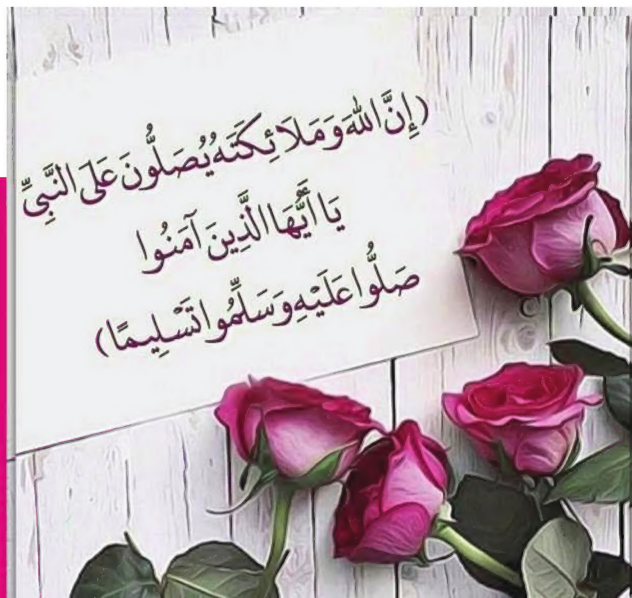 (إِنَّ اللهَ وَمَلَائِكَتَهُ يُصَلُّونَ عَلَى النَّبِيِّ
يَا أَيُّهَا الَّذِينَ آمَنُوا
صَلُّوا عَلَيْهِ وَسَلِّمُوا تَسْلِيمًا)